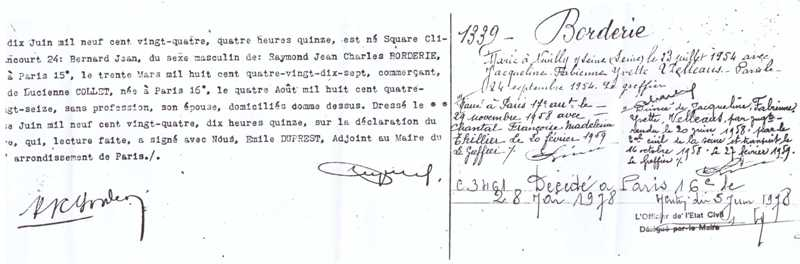 dix Juin mil neuf cent vingt-quatre, quatre heures quinze, est né Square Cli-
ncourt 24: Bernard Jean, du sexe masculin de: Raymond Jean Charles BORDERIE,
à Paris 15°, le trente Mars mil huit cent quatre-vingt-dix-sept, commerçant,
de Lucienne COLLET, née à Paris 16°, le quatre Août mil huit cent quatre-
ngt-seize, sans profession, son épouse, domiciliés comme dessus. Dressé le
ze Juin mil neuf cent vingt-quatre, dix heures quinze, sur la déclaration du
re, qui, lecture faite, a signé avec Nous, Emile DUPREST, Adjoint au Maire du
arrondissement de Paris./.
1339 - Borderie
Marié à Neuilly s/Seine (Seine) le 23 juillet 1954 avec
Jacqueline Fabienne Yvette Velleaus. Paris le
24 septembre 1954. Le greffier
Marié à Paris 17e arrt le
29 novembre 1958 avec
Chantal Françoise Madeleine
Thillier le 20 février 1959
Le Greffier
Divorcé de Jacqueline Fabienne
Yvette Velleaus, par jugt
rendu le 20 juin 1958 par le
tal civil de la Seine et transcrit le
16 octobre 1958. le 27 février 1959.
Le Greffier
C 3461 Décédé à Paris 16e le
28 Mai 1978 Mention du 5 Juin 1978
L'Officier de l'Etat Civil
Délégué par le Maire